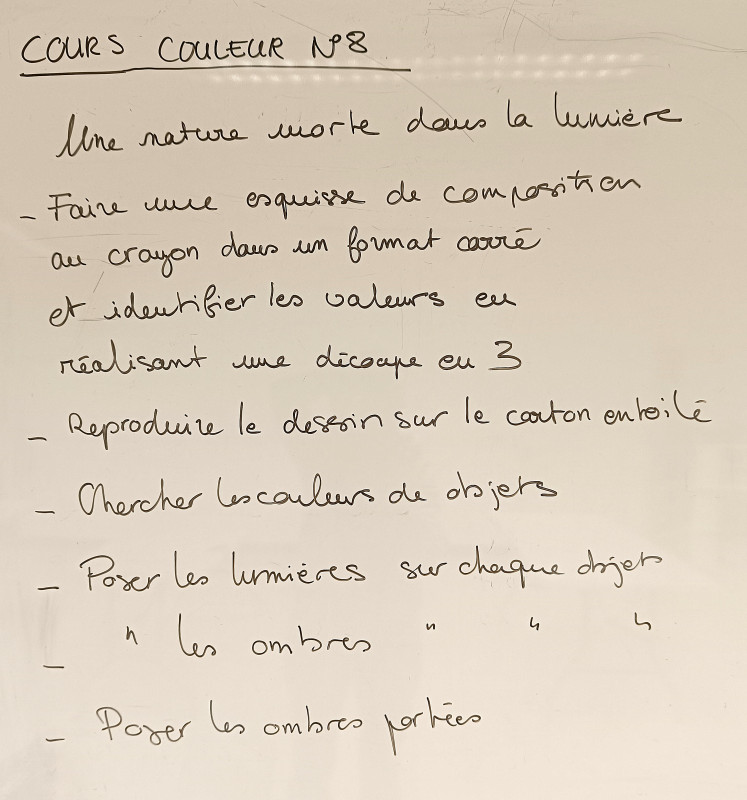 COURS COULEUR N°8
Une nature morte dans la lumière
- Faire une esquisse de composition
au crayon dans un format carré
et identifier les valeurs en
réalisant une découpe en 3
- Reproduire le dessin sur le carton entoilé
- Chercher les couleurs de objets
- Poser les lumières sur chaque objets
- " les ombres " " "
- Poser les ombres portées